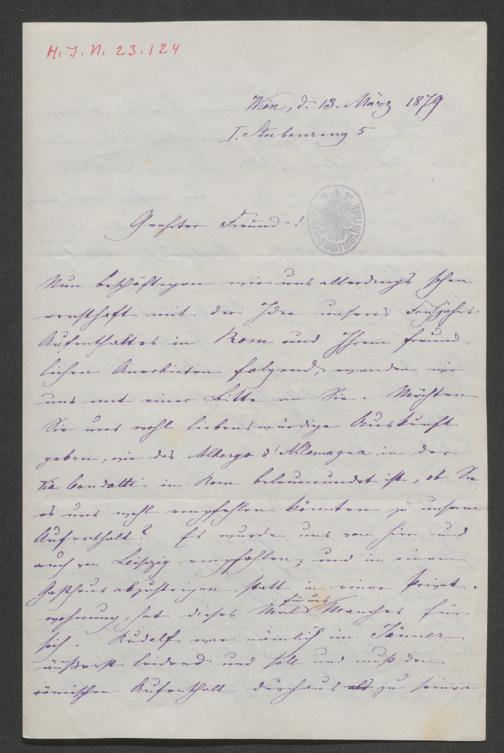 H. I. N. 23.124
Wien, d. 13. März 1879
I. Stubenring 5
Geehrter Freund!
Nun beschäftigen wir uns allerdings schon
ernsthaft mit der Idee unseres Frühjahrs-
Aufenthaltes in Rom und Ihrem freund-
lichen Anerbieten folgend, wenden wir
uns mit einer Bitte an Sie. Möchten
Sie uns wohl liebenswürdige Auskunft
geben, wie das Albergo d'Allemagna in der
Via Condotti in Rom beleumundet ist, ob Sie
es uns wohl empfehlen könnten zu unserm
Aufenthalt? Es wurde uns von hier und
auch von Leipzig empfohlen, und in einem
Gasthaus abzusteigen statt in einer Privat-
wohnung, hat dieses Mal für uns Manches für
sich. Rudolf war nämlich im Jänner
äußerst leidend und soll und muß den
römischen Aufenthalt durchaus zu seiner